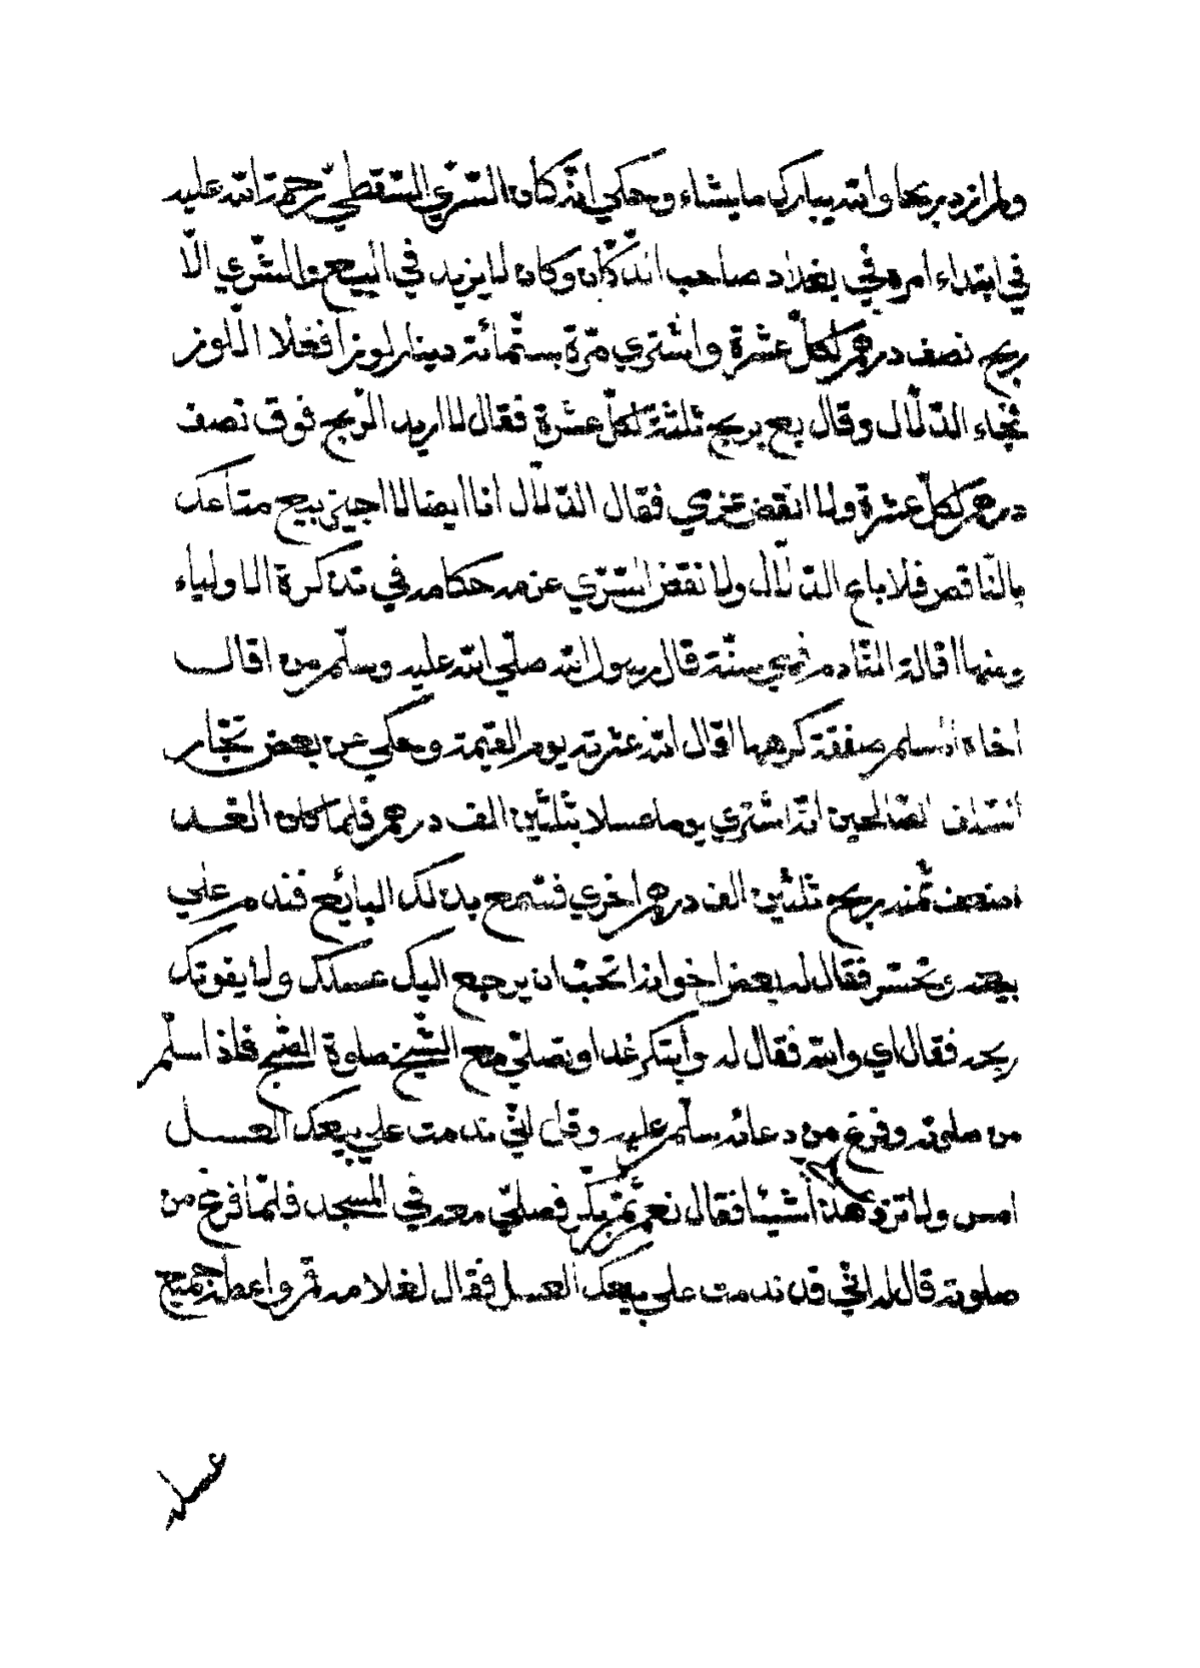 ولم ازد بربحها والله يبارك ما يشاء وحكي انّه كان السّري السّقطي رحمة الله عليه
في ابتداء امره في بغداد صاحب الدّكّان وكان لا يزيد في البيع والشّري الّا
بربح نصف درهم لكلّ عشرة واشتري مرّة بستّمائة دينار لوزا فغلا اللّوز
فجاء الدّلّال وقال بع بربح ثلثة لكلّ عشرة فقال لا اريد الرّبح فوق نصف
درهم لكلّ عشرة ولا انقض عزمي فقال الدّلّال انا ايضا لا اجيز بيع متاعك
بالنّاقص فلا باع الدّلّال ولا نقض السّري عزمه حكاه في تذكرة الاولياء
ومنها اقالة النّادم فهي سنّة قال رسول الله صلّي الله عليه وسلّم من اقال
اخاه المسلم صفقة كرهها اقال الله عثرته يوم القيمة وحكي عن بعض تجّار
السّلف الصّالحين انّه اشتري يوما عسلا بثلثين الف درهم فلما كان الغد
اضعف ثمنه بربح ثلثين الف درهم اخري فسمع بذلك البايع فندم علي
بيعه وتحسّر فقال له بعض اخوانه اتحبّ ان يرجع اليك عسلك ولا يفوتك
ربحه فقال اي والله فقال له وابتكر غدا وتصلّي مع الشّيخ صلوة الصّبح فاذا سلّم
من صلوته وفرغ من دعائه سلّم عليه وقل انّي ندمت علي بيعك العسل
امس ولا تزد هذا شيئا فقال نعم ثمّ بكّر فصلّي معه في المسجد فلمّا فرغ من
صلوته قال له انّي قد ندمت علي بيعك العسل فقال لغلامه قم واعطه جميع
عسله